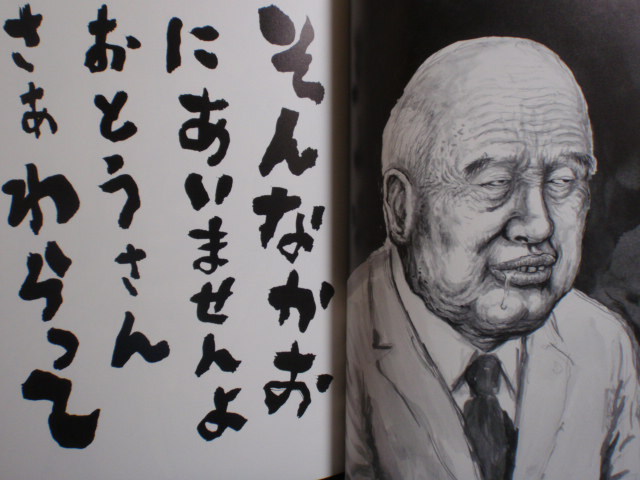 そんなかお
にあいませんよ
おとうさん
さぁわらって